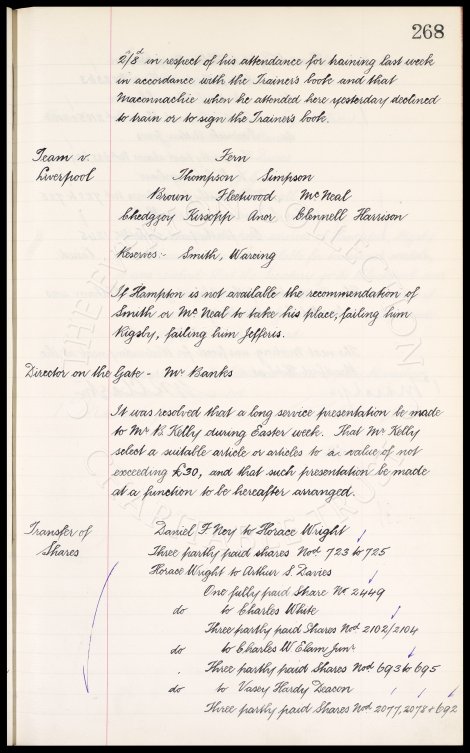 268
2/8d in respect of his attendance for training last week
in accordance with the Trainer's book and that
Maconnachie when he attended here yesterday declined
to train or to sign the Trainer's book.
Team v. Fern
Liverpool Thompson Simpson
Brown Fleetwood McNeal
Chedgzoy Kirsopp Anor Clennell Harrison
Reserves:- Smith, Wareing
If Hampton is not available the recommendation of
Smith or McNeal to take his place, failing him
Rigsby, failing him Jefferis.
Director on the Gate - Mr Banks
It was resolved that a long service presentation be made
to Mr B. Kelly during Easter week. That Mr Kelly
select a suitable article or articles to a value of not
exceeding £30, and that such presentation be made
at a function to be hereafter arranged.
Transfer of Daniel F. Roy to Horace Wright
Shares Three partly paid shares Nod 723 to 725
Horace Wright to Arthur S. Davies
One fully paid Share No 2449
do to Charles White
Three partly paid Shares Nod 2102/2104
do to Charles W. Elam Junr
Three partly paid Shares Nod 693 to 695
do to Vasey Hardy Deacon
Three partly paid Shares Nod 2077, 2078 + 692